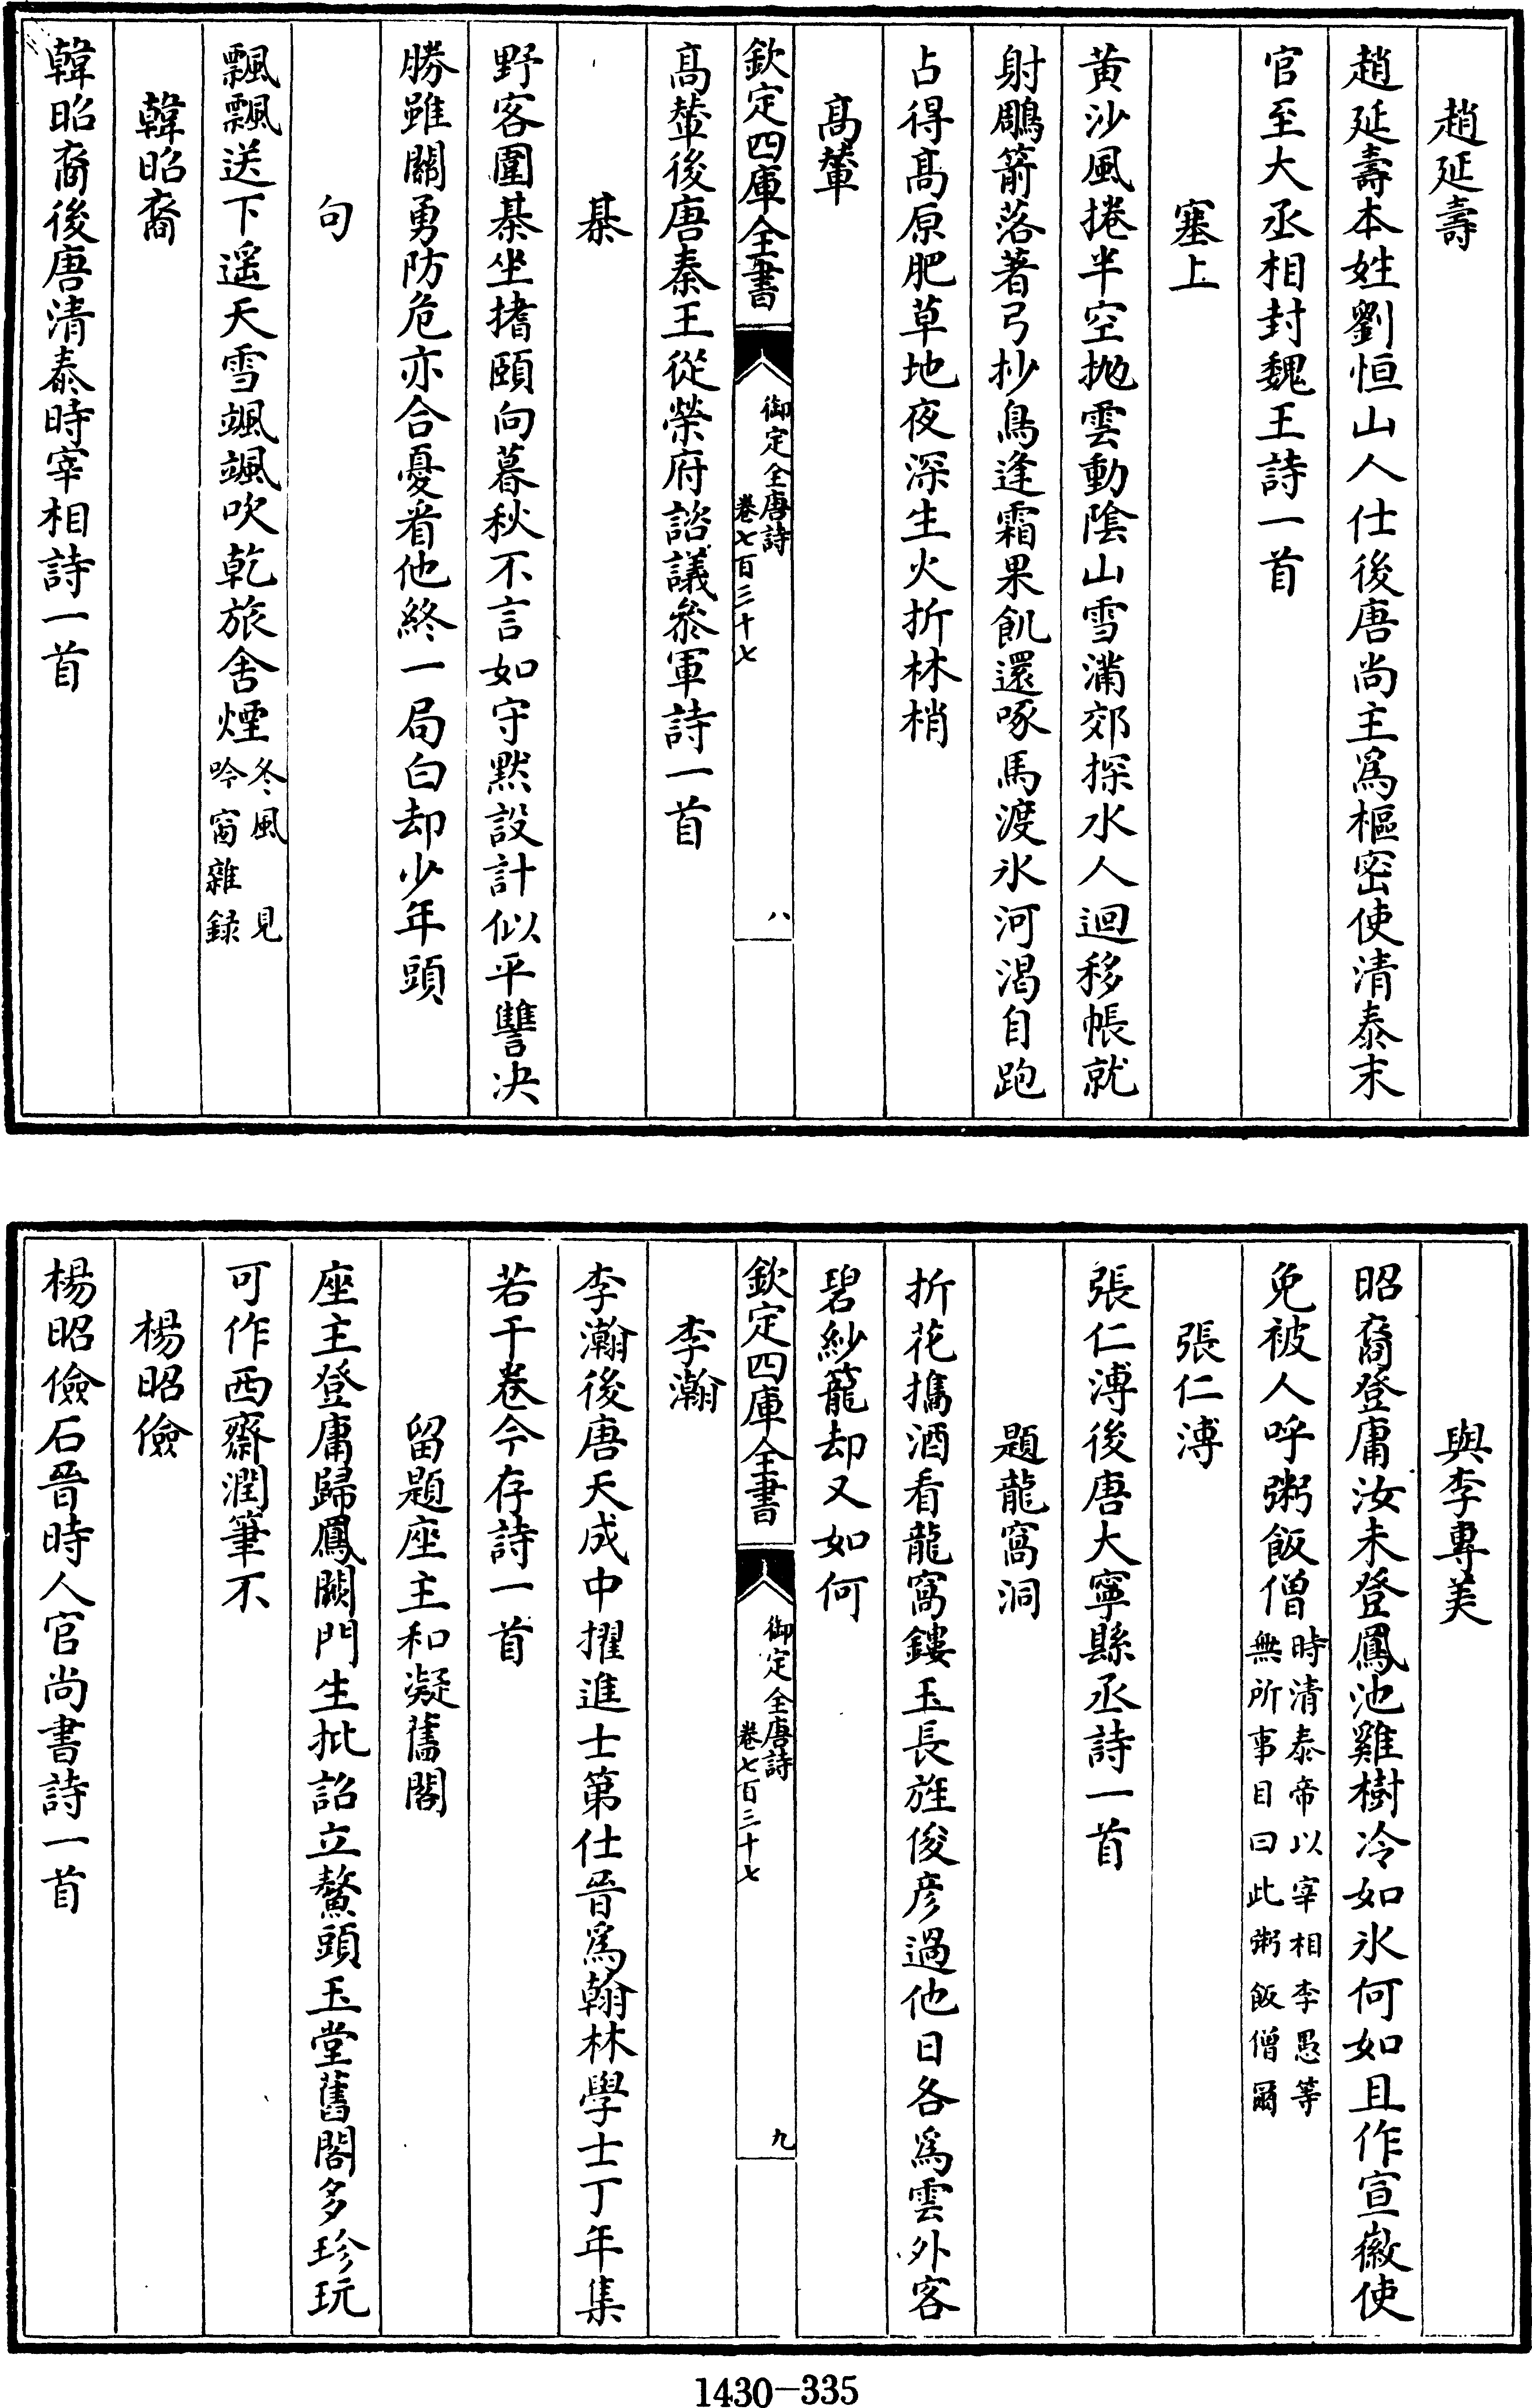 趙延壽
趙延壽本姓劉恒山人仕後唐尚主為樞密使清泰末
官至大丞相封魏王詩一首
塞上
黃沙風捲半空拋雲動陰山雪滿郊探水人迴移帳就
射鵰箭落著弓抄鳥逢霜果飢還啄馬渡氷河渴自跑
占得髙原肥草地夜深生火折林梢
髙輦
欽定四庫全書
御定全唐詩
卷七百三十七
八
髙輦後唐秦王從榮府諮議叅軍詩一首
棊
野客圍棊坐搘頤向暮秋不言如守黙設計似平讐決
勝雖關勇防危亦合憂看他終一局白却少年頭
句
飄飄送下遥天雪颯颯吹乾旅舍煙冬風 見
吟窗雜録
韓昭裔
韓昭裔後唐清泰時宰相詩一首
與李專美
昭裔登庸汝未登鳳池雞樹冷如氷何如且作宣徽使
免被人呼粥飯僧時清泰帝以宰相李愚等
無所事目曰此粥飯僧爾
張仁溥
張仁溥後唐大寧縣丞詩一首
題龍窩洞
折花攜酒看龍窩鏤玉長旌俊彦過他日各為雲外客
碧紗籠却又如何
欽定四庫全書
御定全唐詩
卷七百三十七
九
李瀚
李瀚後唐天成中擢進士第仕晉為翰林學士丁年集
若干卷今存詩一首
留題座主和凝舊閣
座主登庸歸鳳闕門生批詔立鰲頭玉堂舊閣多珍玩
可作西齋潤筆不
楊昭儉
楊昭儉石晉時人官尚書詩一首
1430-335